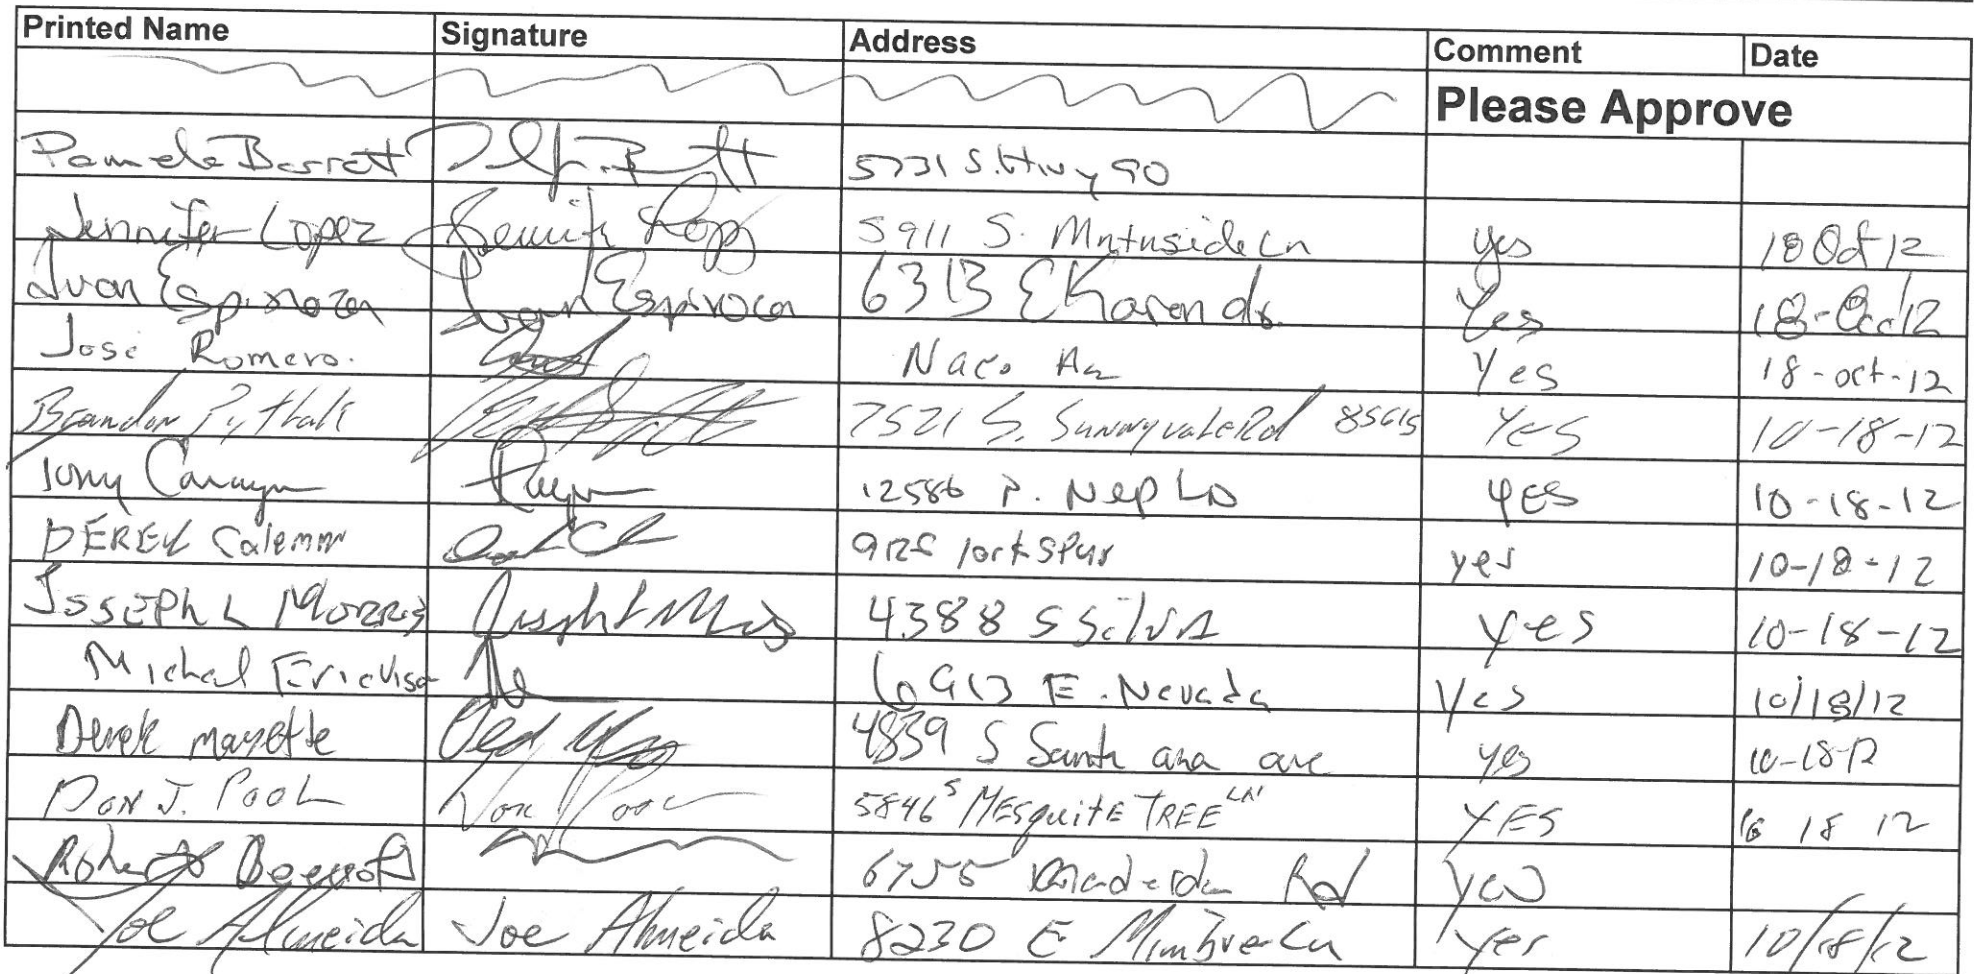 Printed Name Signature Address Comment Date
Please Approve
Pamela Barrett 5731 S. Hwy 90
Jennifer Lopez 5911 S. Mntnside Ln yes 18 Oct 12
Ivan Espinoza Ivan Espinoza 6313 E Karen dr. Yes 18-Oct12
Jose Romero. Naco Az Yes 18-oct-12
Brandon 7521 S. Sunnyvale Rd 85615 YES 10-18-12
Tony 12586 P. YES 10-18-12
DEREK Calemm yes 10-18-12
JOSEPH L MORRIS 4388 S yes 10-18-12
Michal 6913 E. Nevada Yes 10/18/12
Derek mayette 4839 S Santa ana ave yes 10-18-12
DON J. POOL Don Pool 5846 S MESquitE TREE LN YES 10 18 12
6755 Rd yes
Joe Almeida Joe Almeida 8230 E Yes 10/18/12